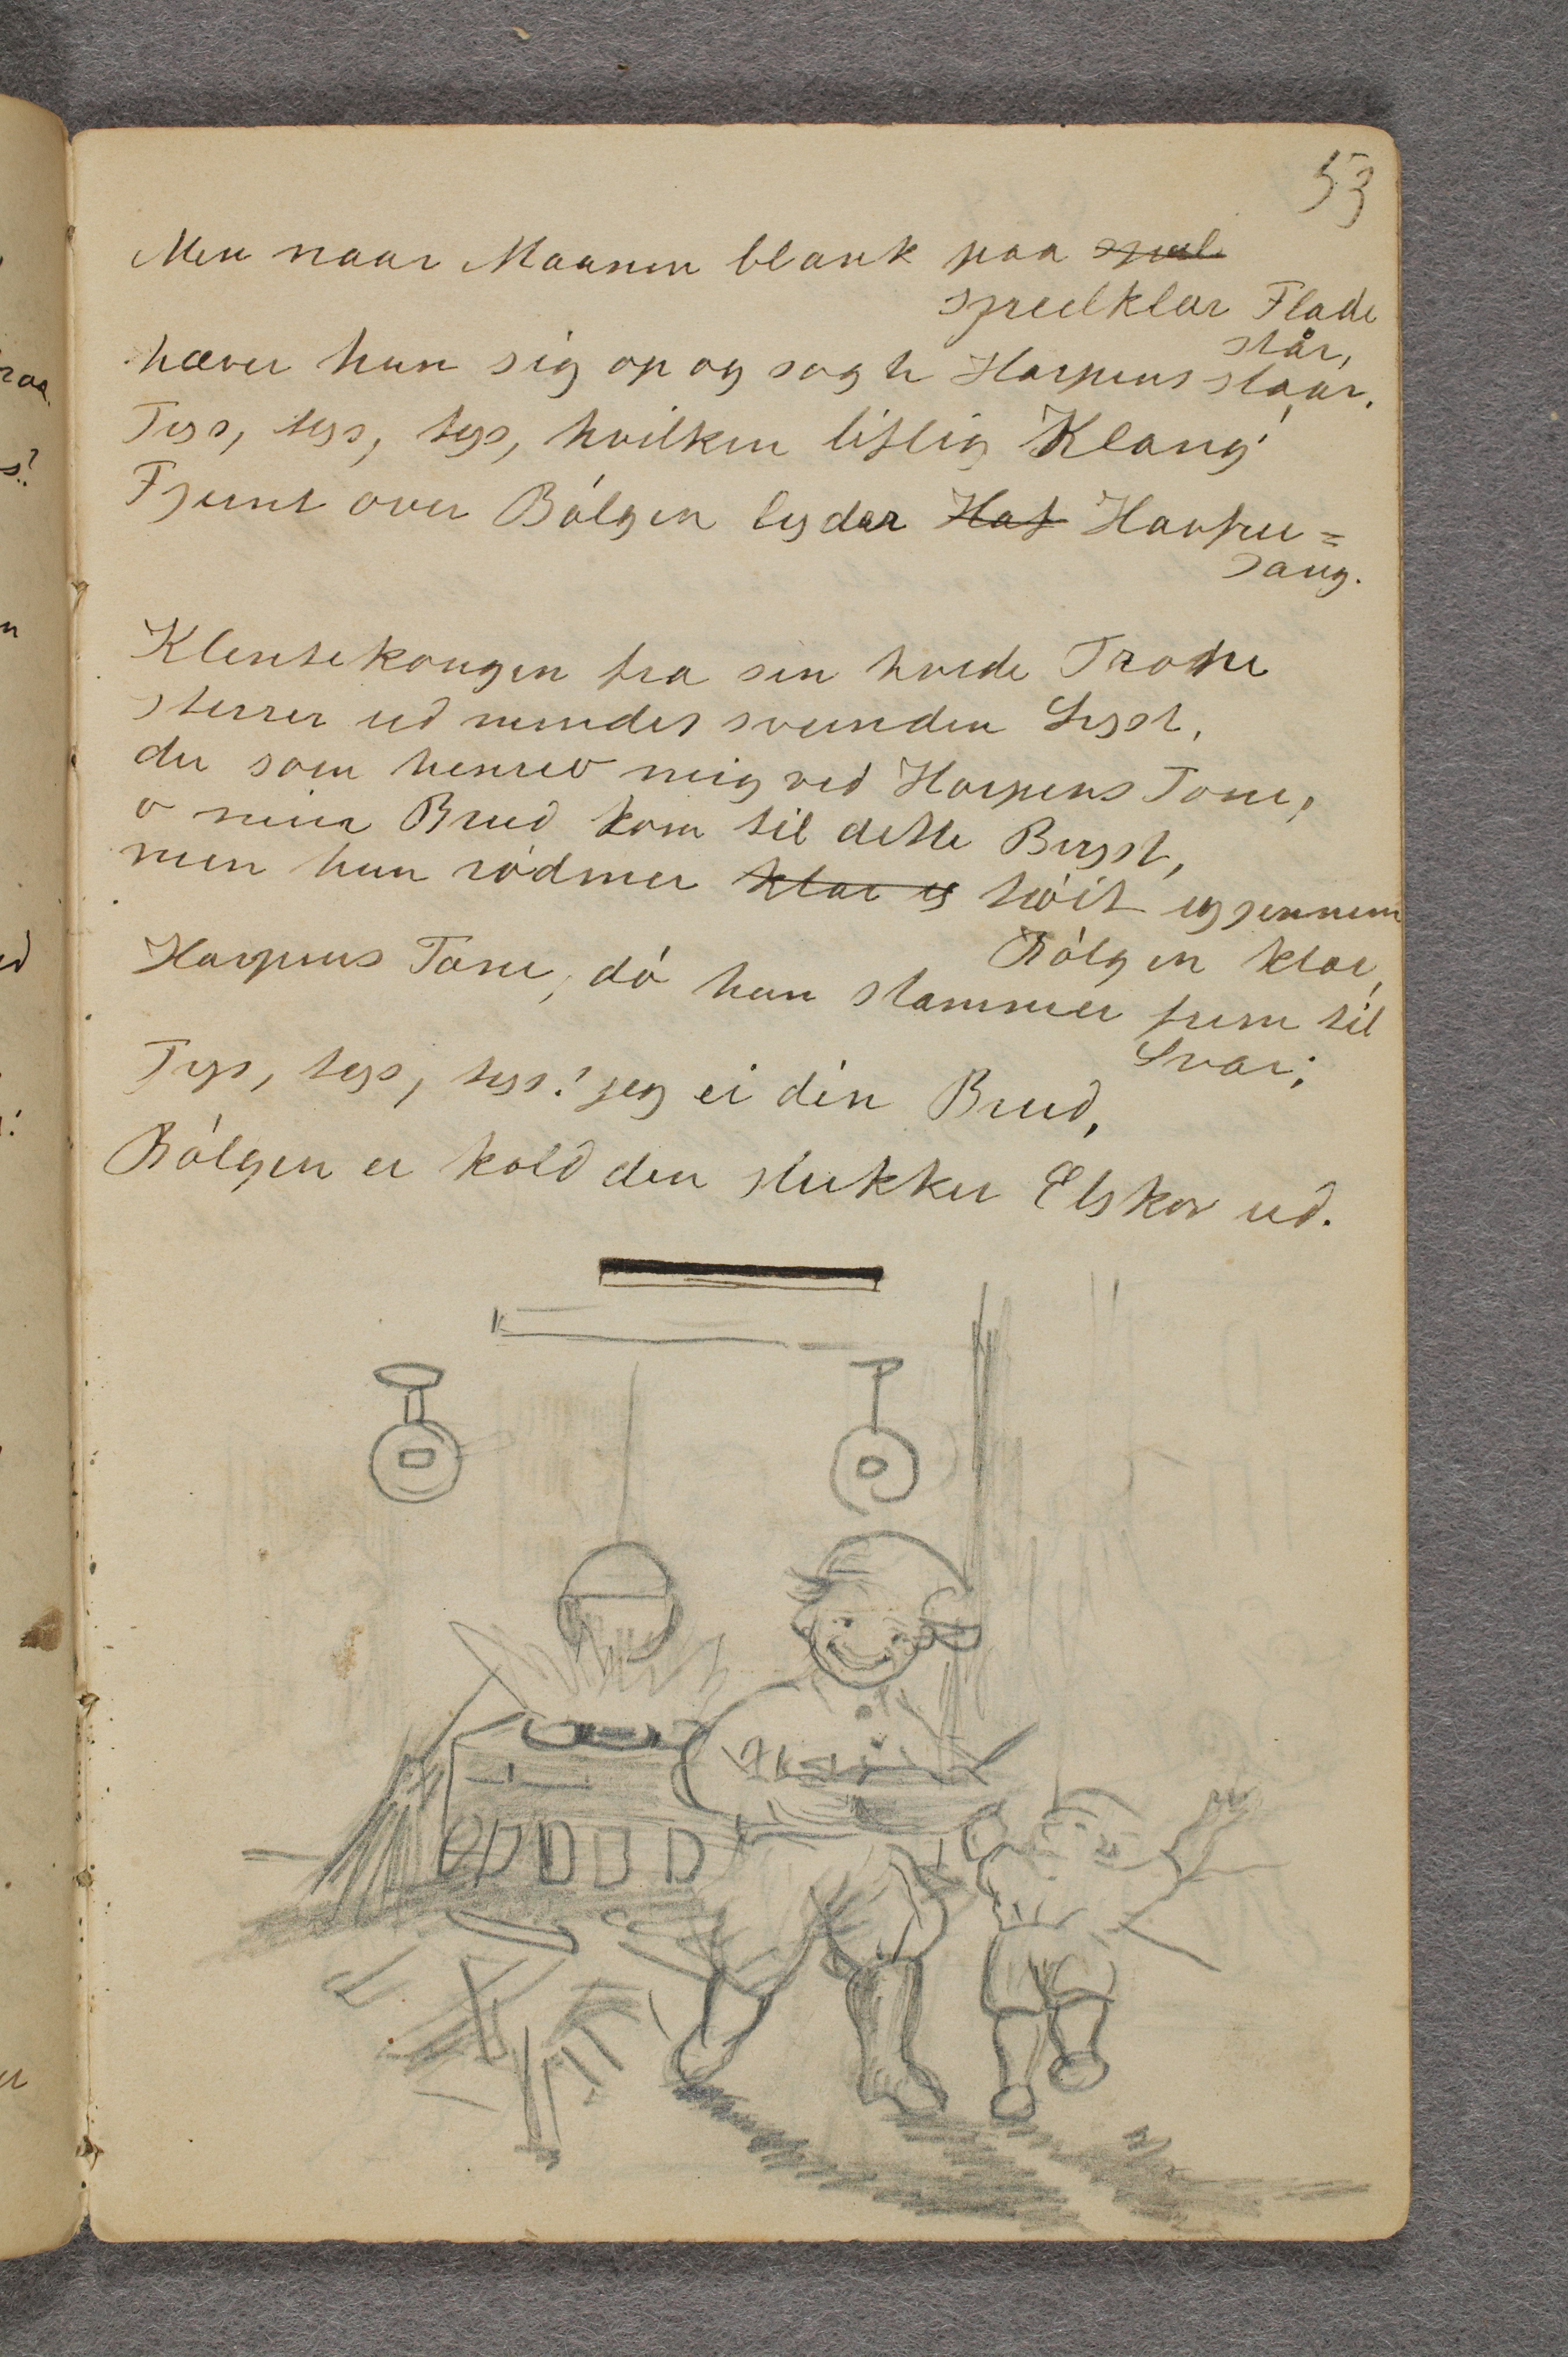 53
Men naar Maanen blank paa ~~speel~~
speelklar Flade
står,
hæver hun sig op og sagte Harpens slaar.
Tys, tys, tys, hvilken liflig Klang
Fjernt over Bølgen lyder ~~Haf~~ Havfru=
sang.
Klentekongen fra sin hvide Trone
stirrer ud mindes svunden Lyst,
du som henrev mig ved Harpens Tone,
o min Brud kom til dette Bryst,
men hun rødmer ~~klar og~~ høit igjennem
Bølgen klar,
Harpens Tone, dó hun stammer frem til
Svar;
Tys, tys, tys! jeg ei din Brud,
Bølgen er kold den slukker Elskov ud.
raa
s?
n
d